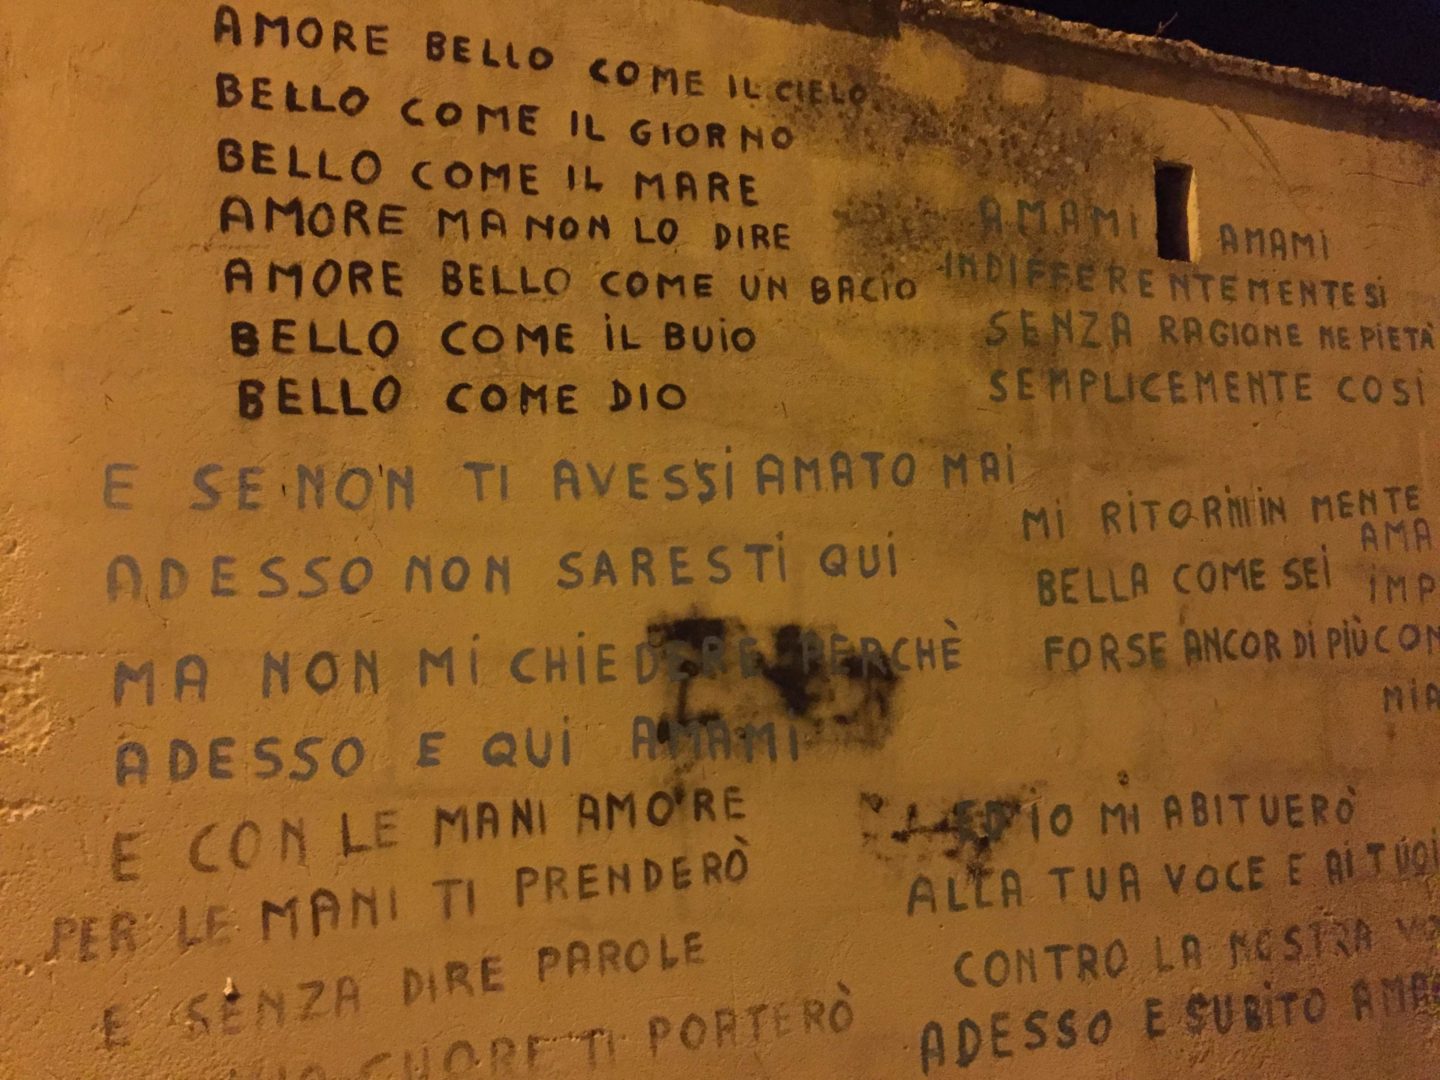 AMORE BELLO COME IL CIELO
BELLO COME IL GIORNO
BELLO COME IL MARE
AMORE MA NON LO DIRE
AMORE BELLO COME UN BACIO
BELLO COME IL BUIO
BELLO COME DIO
E SE NON TI AVESSI AMATO MAI
ADESSO NON SARESTI QUI
MA NON MI CHIEDERE PERCHÈ
ADESSO E QUI AMAMI
E CON LE MANI AMORE
PER LE MANI TI PRENDERÒ
E SENZA DIRE PAROLE
CUORE TI PORTERÒ
AMAMI AMAMI
INDIFFERENTEMENTE SI
SENZA RAGIONE NE PIETÀ
SEMPLICEMENTE COSI
MI RITORNI IN MENTE
BELLA COME SEI
FORSE ANCOR DI PIÙ CON
AMA
IMP
MIA
ED IO MI ABITUERÒ
ALLA TUA VOCE E AI TUOI
CONTRO LA NOSTRA
ADESSO E SUBITO AMA